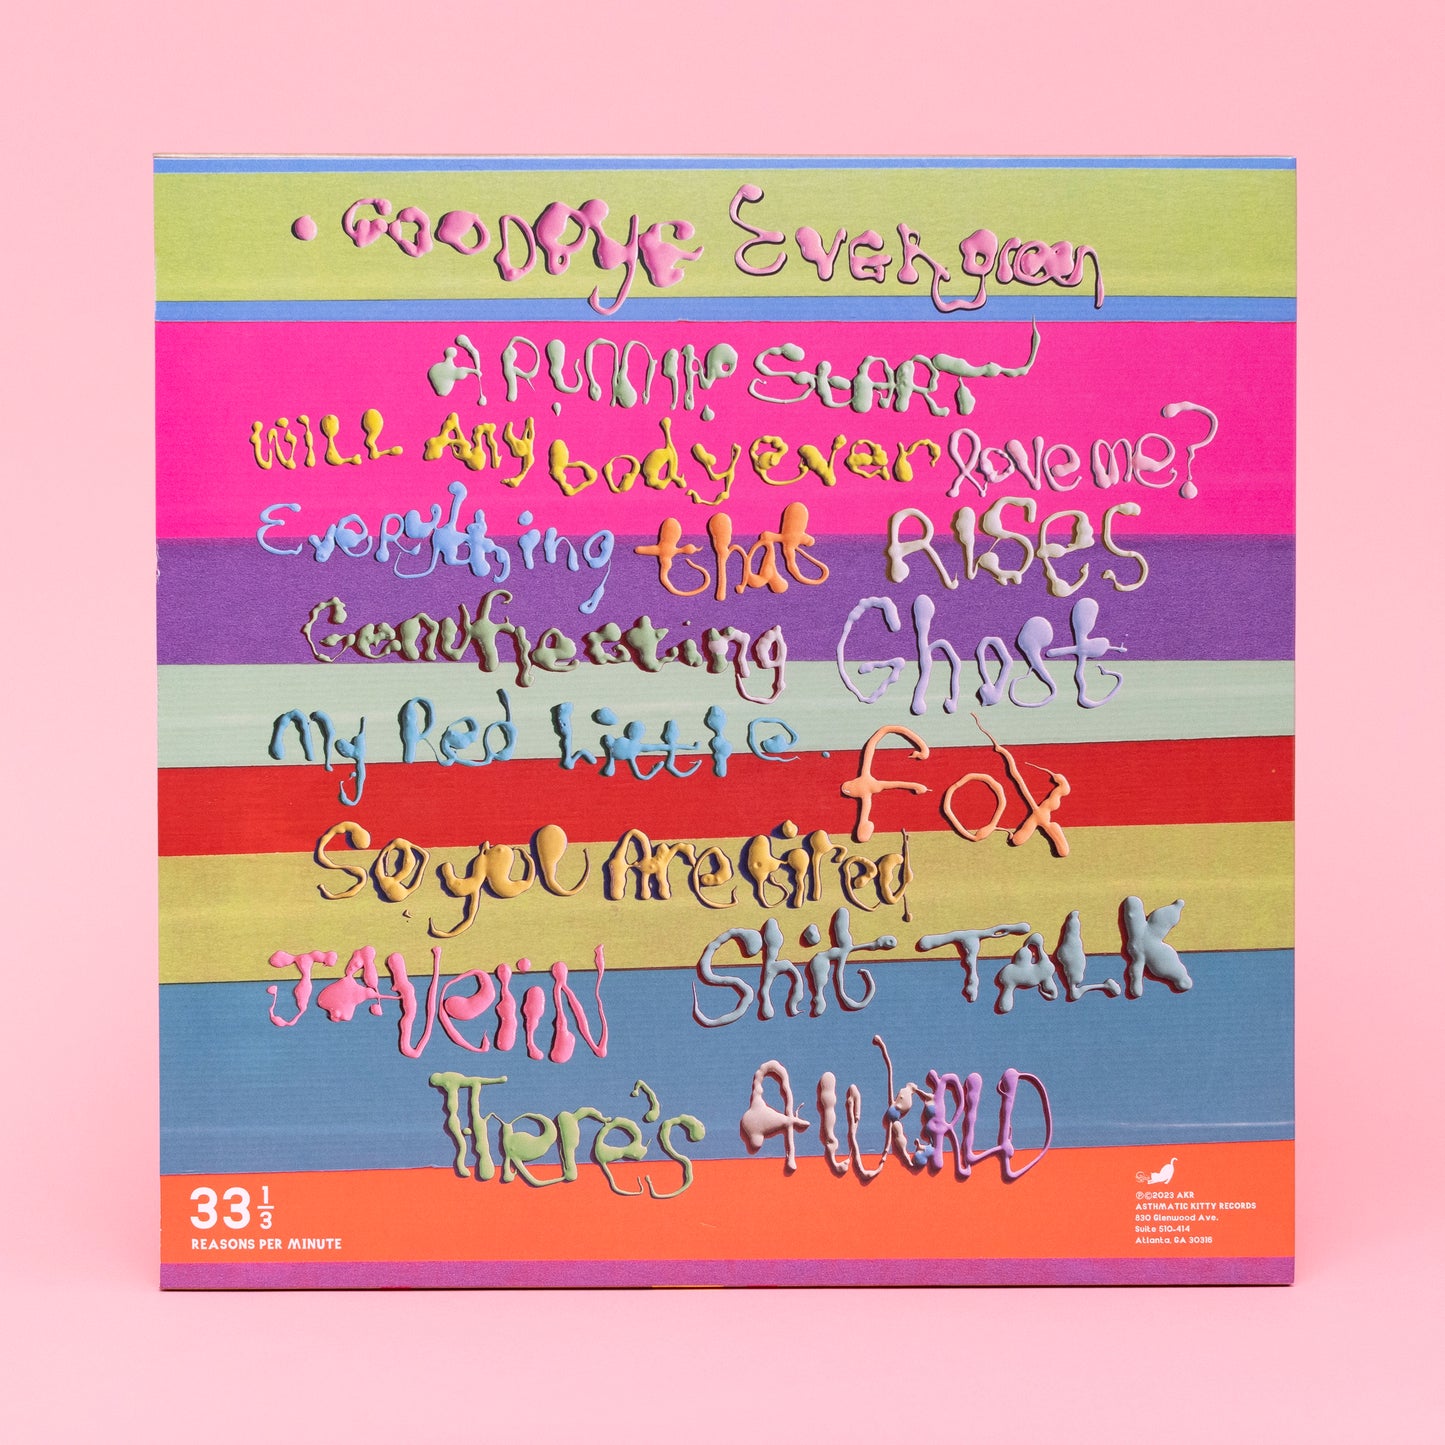 GOODBYE EVERgreen
A RUNNIN START
WILL Any body ever love me?
Everything that RISES
Genuflecting Ghost
My Red Little Fox
So you Are tired
JAVeliN Shit TALK
THere's A WORLD
33 1/3
REASONS PER MINUTE
℗©2023 AKR
ASTHMATIC KITTY RECORDS
830 Glenwood Ave.
Suite 510-414
Atlanta, GA 30316